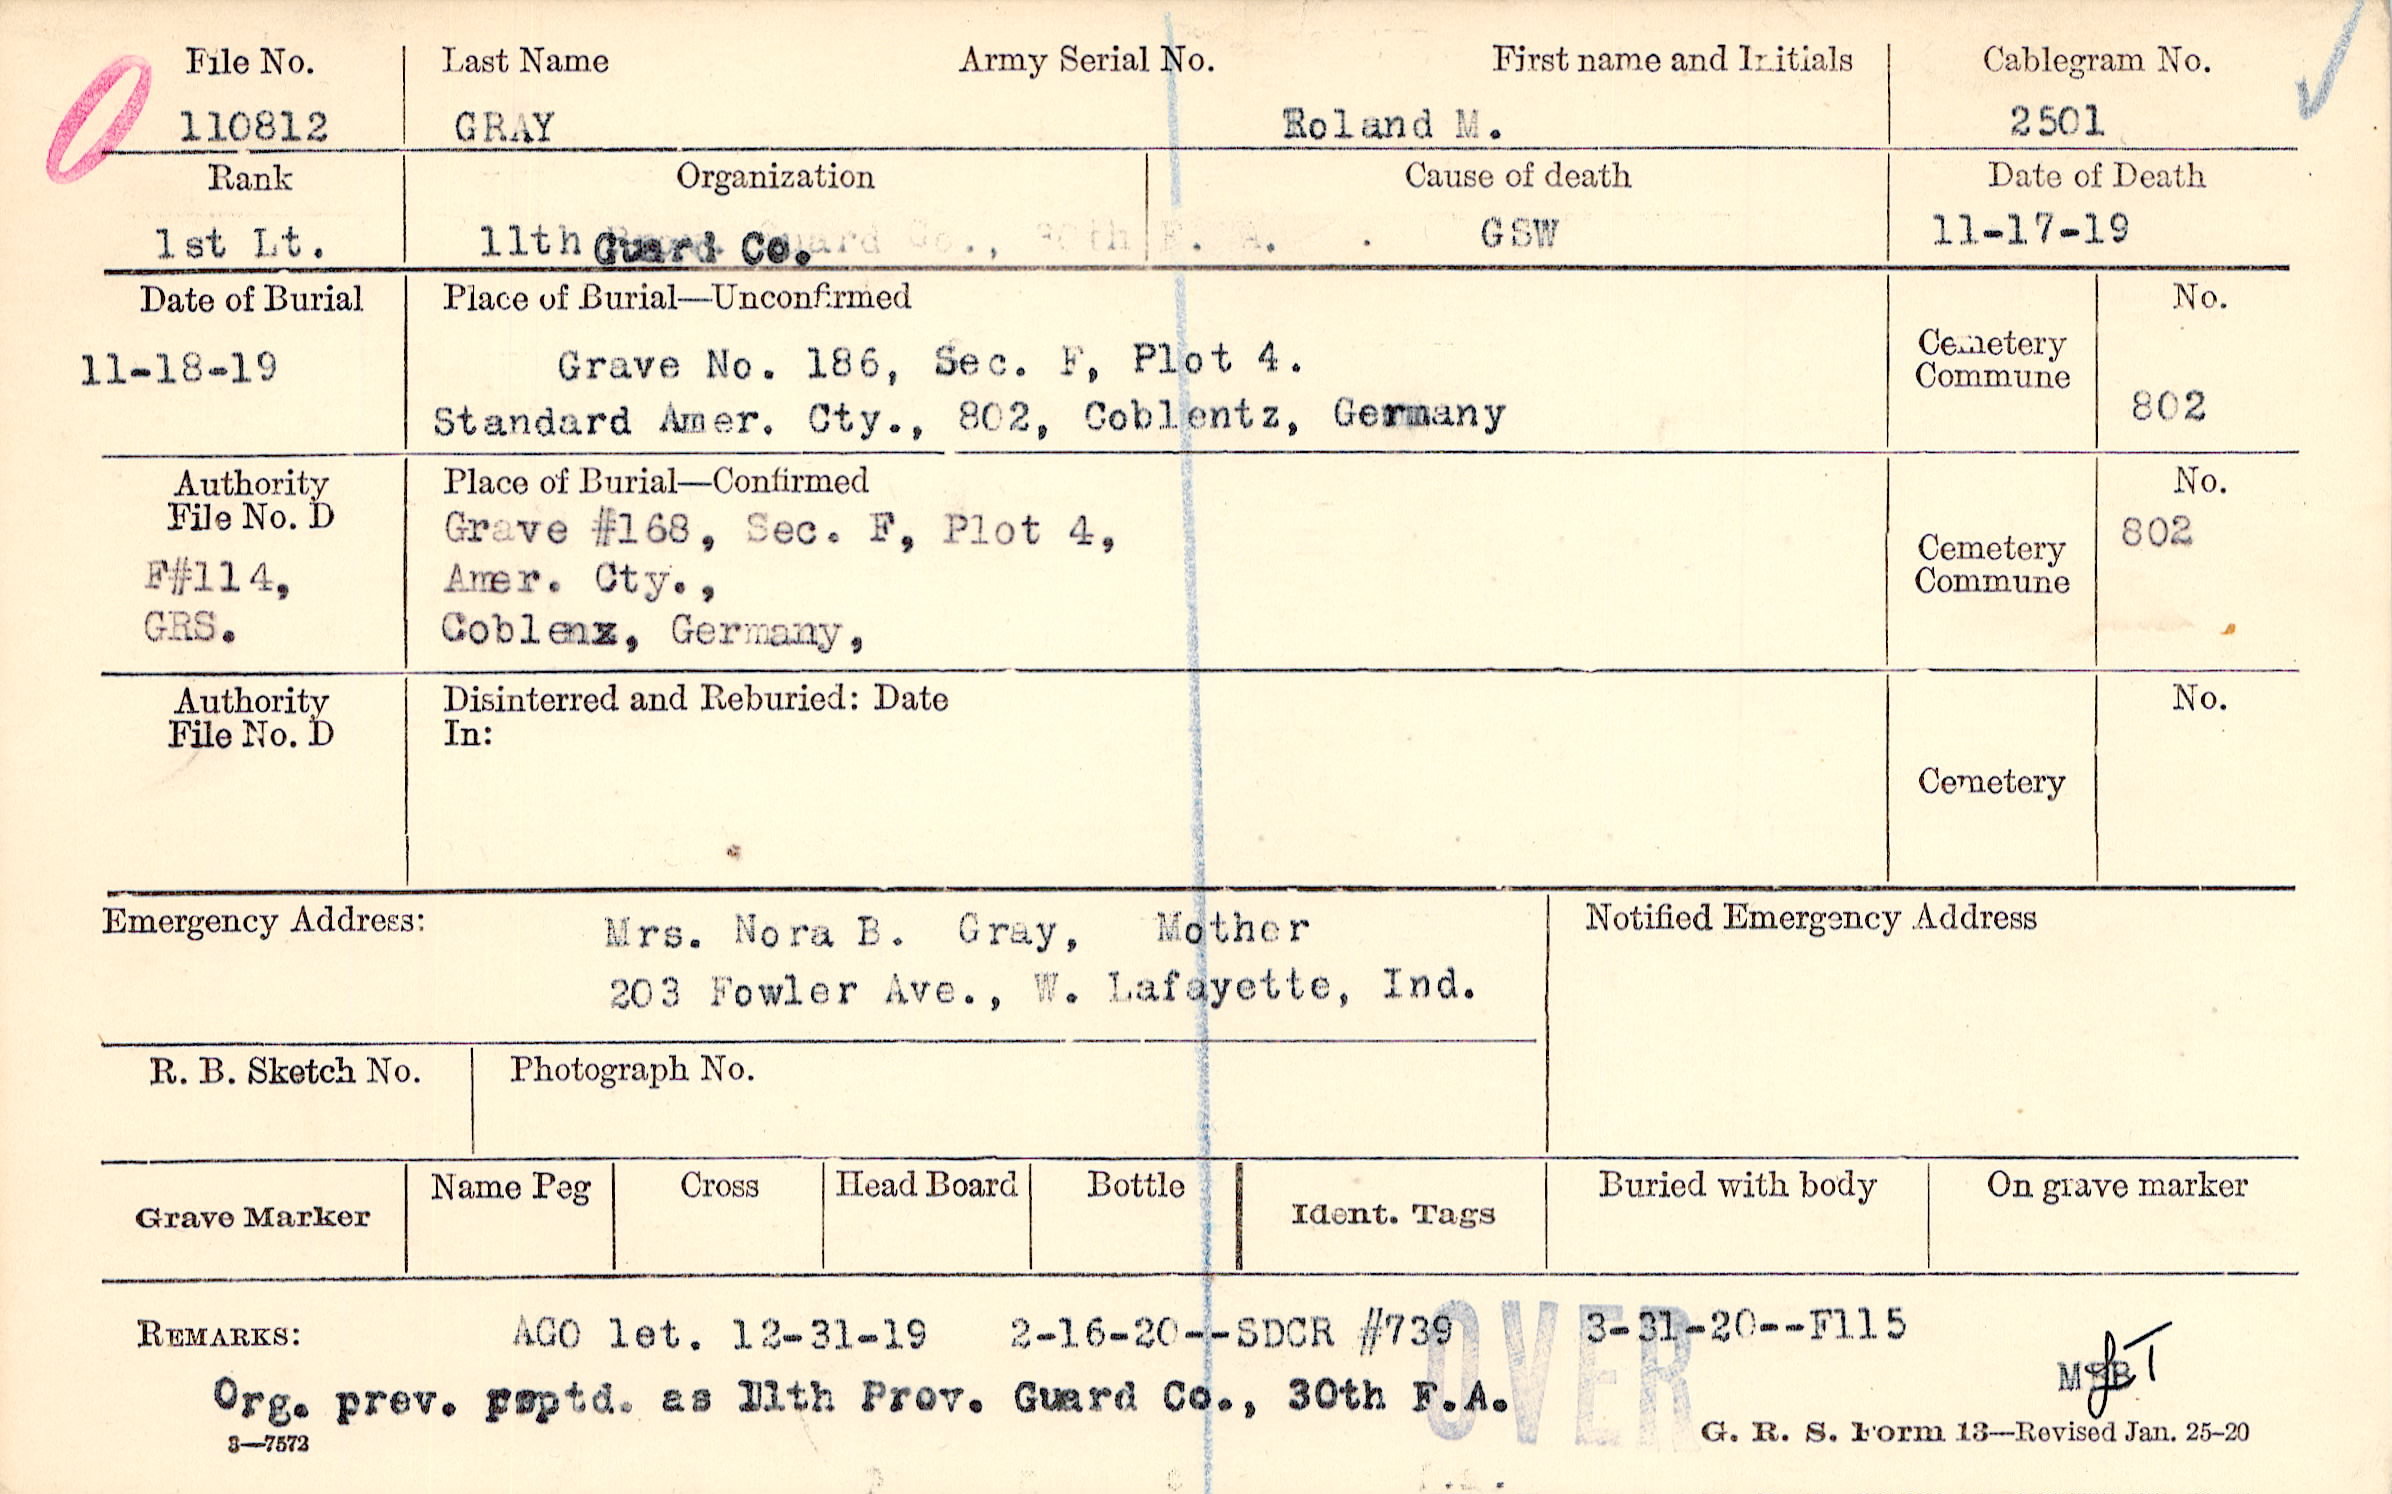 File No. Last Name Army Serial No. First name and Initials Cablegram No.
110812 GRAY Roland M. 2501
Rank Organization Cause of death Date of Death
1st Lt. 11th Guard Co. GSW 11-17-19
Date of Burial Place of Burial—Unconfirmed No.
11-18-19 Grave No. 186, Sec. F, Plot 4. Cemetery
Commune
Standard Amer. Cty., 802, Coblentz, Germany 802
Authority Place of Burial—Confirmed No.
File No. D Grave #168, Sec. F, Plot 4, 802
F#114, Amer. Cty., Cemetery
Commune
GRS. Coblenz, Germany,
Authority Disinterred and Reburied: Date No.
File No. D In:
Cemetery
Emergency Address: Mrs. Nora B. Gray, Mother Notified Emergency Address
203 Fowler Ave., W. Lafayette, Ind.
R. B. Sketch No. Photograph No.
Grave Marker Name Peg Cross Head Board Bottle Ident. Tags Buried with body On grave marker
REMARKS: AGO let. 12-31-19 2-16-20--SDCR #739 3-31-20--F115
OVER
Org. prev. reptd. as 11th Prov. Guard Co., 30th F.A.
3—7572 G. R. S. Form 13—Revised Jan. 25-20